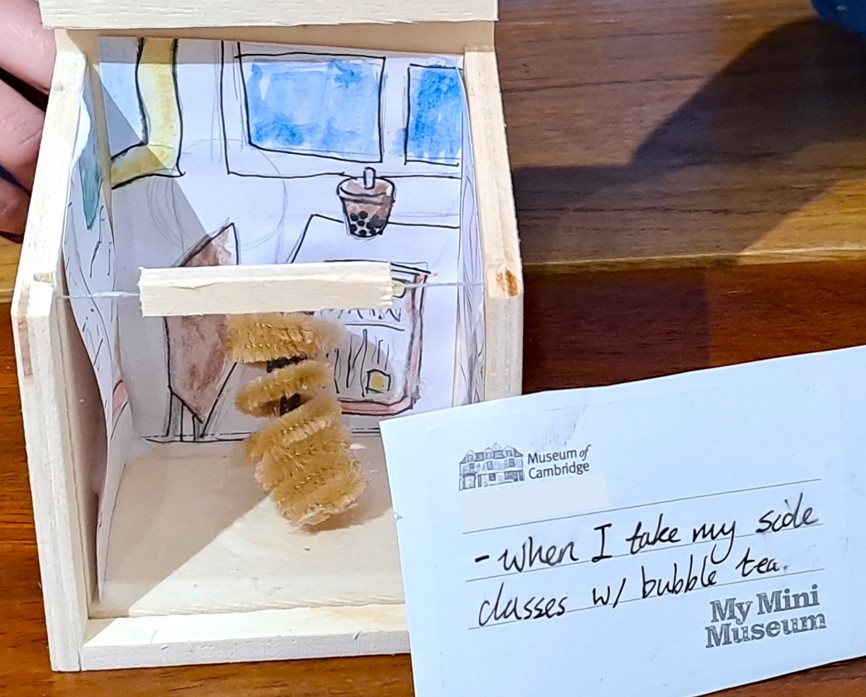 Museum of
Cambridge
- when I take my side
classes w/ bubble tea.
My Mini
Museum